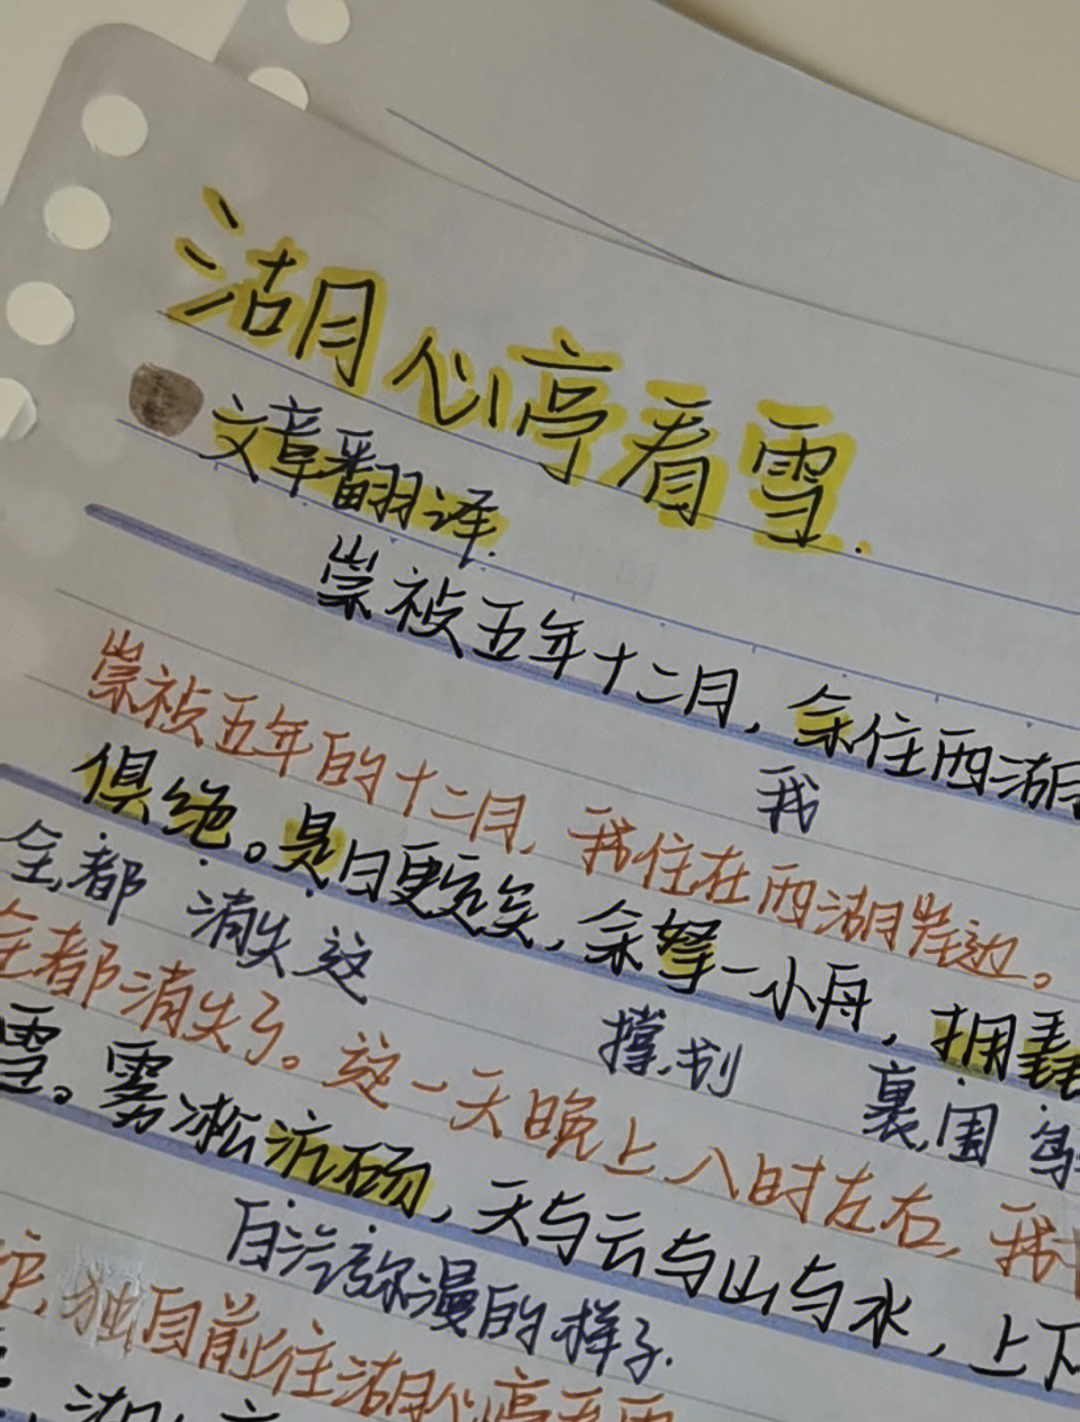 湖心亭看雪.
文章翻译.
崇祯五年十二月,余住西湖
我
崇祯五年的十二月,我住在西湖岸边。
俱绝。是日更定矣,余拏一小舟,拥毳
全,都 消失 这
撑.划 裹,围
全都消失了。这一天晚上八时左右,我
雪。雾凇沆砀,天与云与山与水,上下
白汽弥漫的样子.
炉,独自前往湖心亭看雪